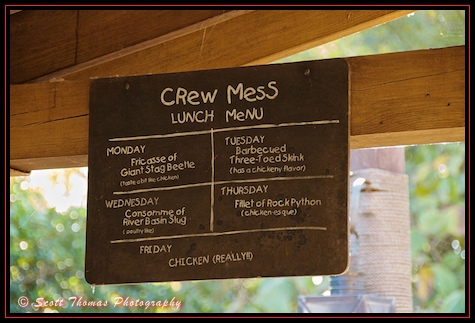 CREW MESS
LUNCH MENU
MONDAY
Fricasse of
Giant Stag Beetle
(taste a bit like chicken)
TUESDAY
Barbecued
Three-Toed Skink
(has a chickeny flavor)
WEDNESDAY
Consomme of
River Basin Slug
(poultry like)
THURSDAY
Fillet of Rock Python
(chicken-esque)
FRIDAY
CHICKEN (REALLY!!!)
© Scott Thomas Photography